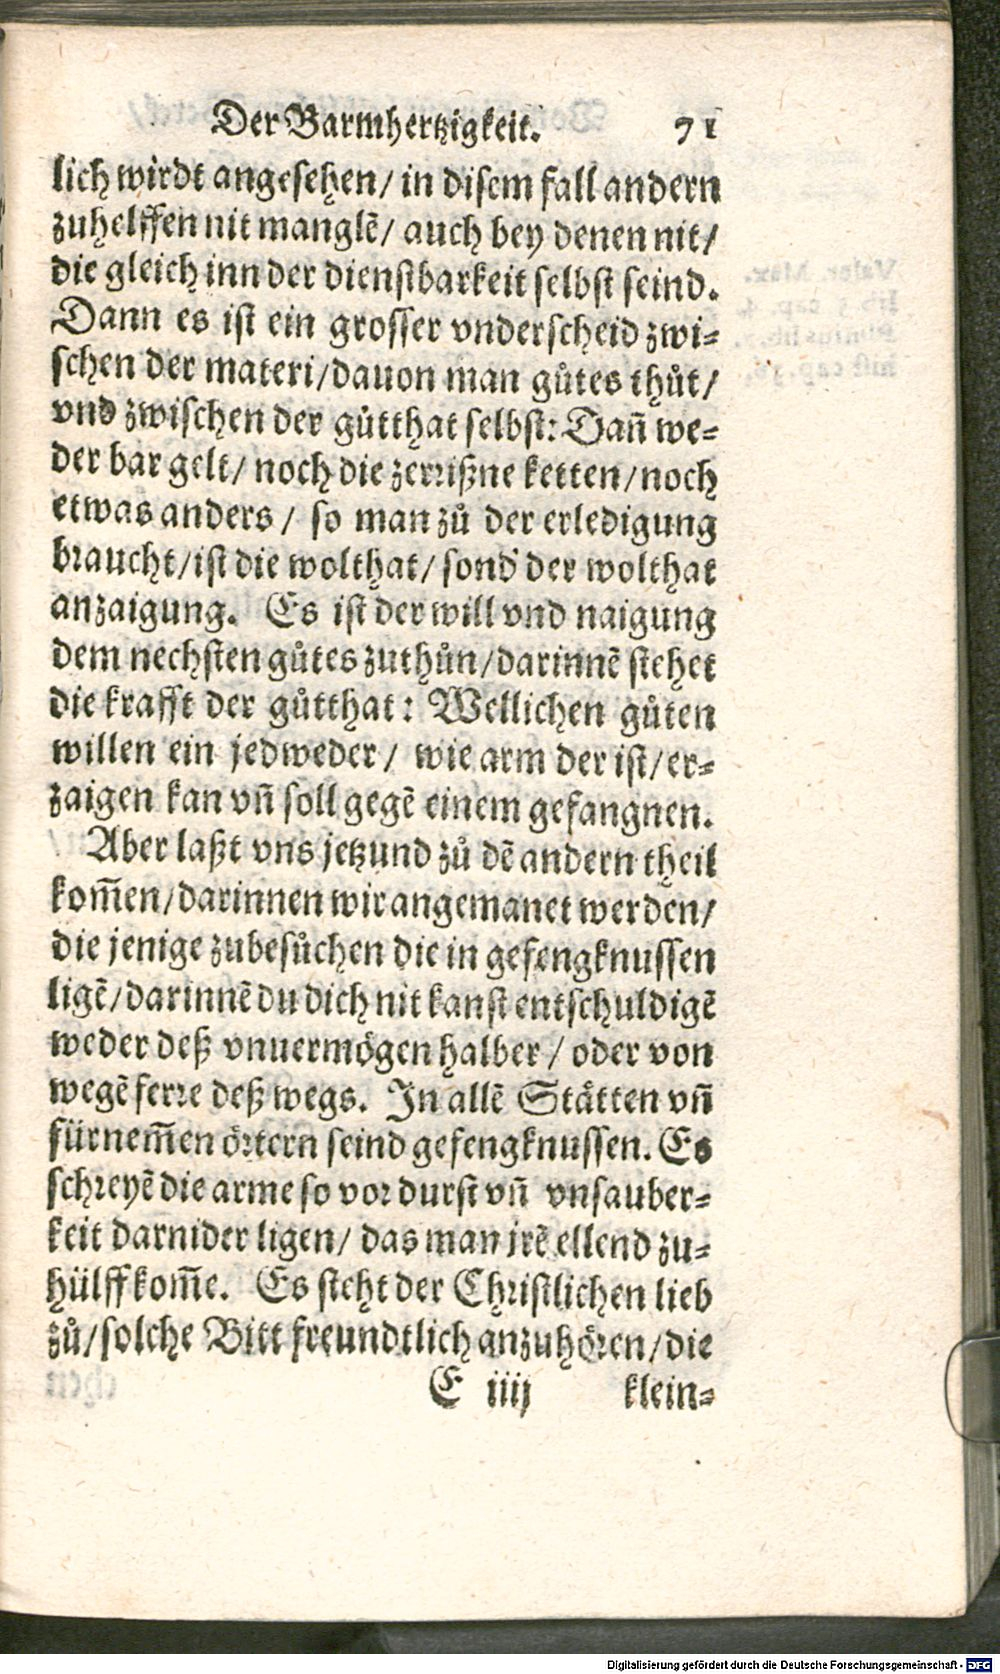 Der Barmhertzigkeit. 71
lich wirdt angesehen/ in disem fall andern
zuhelffen nit manglẽ/ auch bey denen nit/
die gleich inn der dienstbarkeit selbst seind.
Dann es ist ein grosser vnderscheid zwi-
schen der materi/dauon man gůtes thůt/
vnd zwischen der gůtthat selbst: Dañ we-
der bar gelt/ noch die zerrißne ketten/noch
etwas anders/ so man zů der erledigung
braucht/ist die wolthat/ sond' der wolthat
anzaigung. Es ist der will vnd naigung
dem nechsten gůtes zuthůn/darinnẽ stehet
die krafft der gůtthat: Wellichen gůten
willen ein jedweder/ wie arm der ist/er-
zaigen kan vñ soll gegẽ einem gefangnen.
Aber laßt vns jetzund zů dẽ andern theil
kom̃en/darinnen wir angemanet werden/
die jenige zubesůchen die in gefengknussen
ligẽ/darinnẽ du dich nit kanst entschuldigẽ
weder deß vnuermögen halber/ oder von
wegẽ ferre deß wegs. In allẽ Stätten vñ
fürnem̃en örtern seind gefengknussen. Es
schreyẽ die arme so vor durst vñ vnsauber-
keit darnider ligen/ das man jrẽ ellend zu-
hülff kom̃e. Es steht der Christlichen lieb
zů/solche Bitt freundtlich anzuhören/die
E iiij klein-
Digitalisierung gefördert durch die Deutsche Forschungsgemeinschaft - DFG